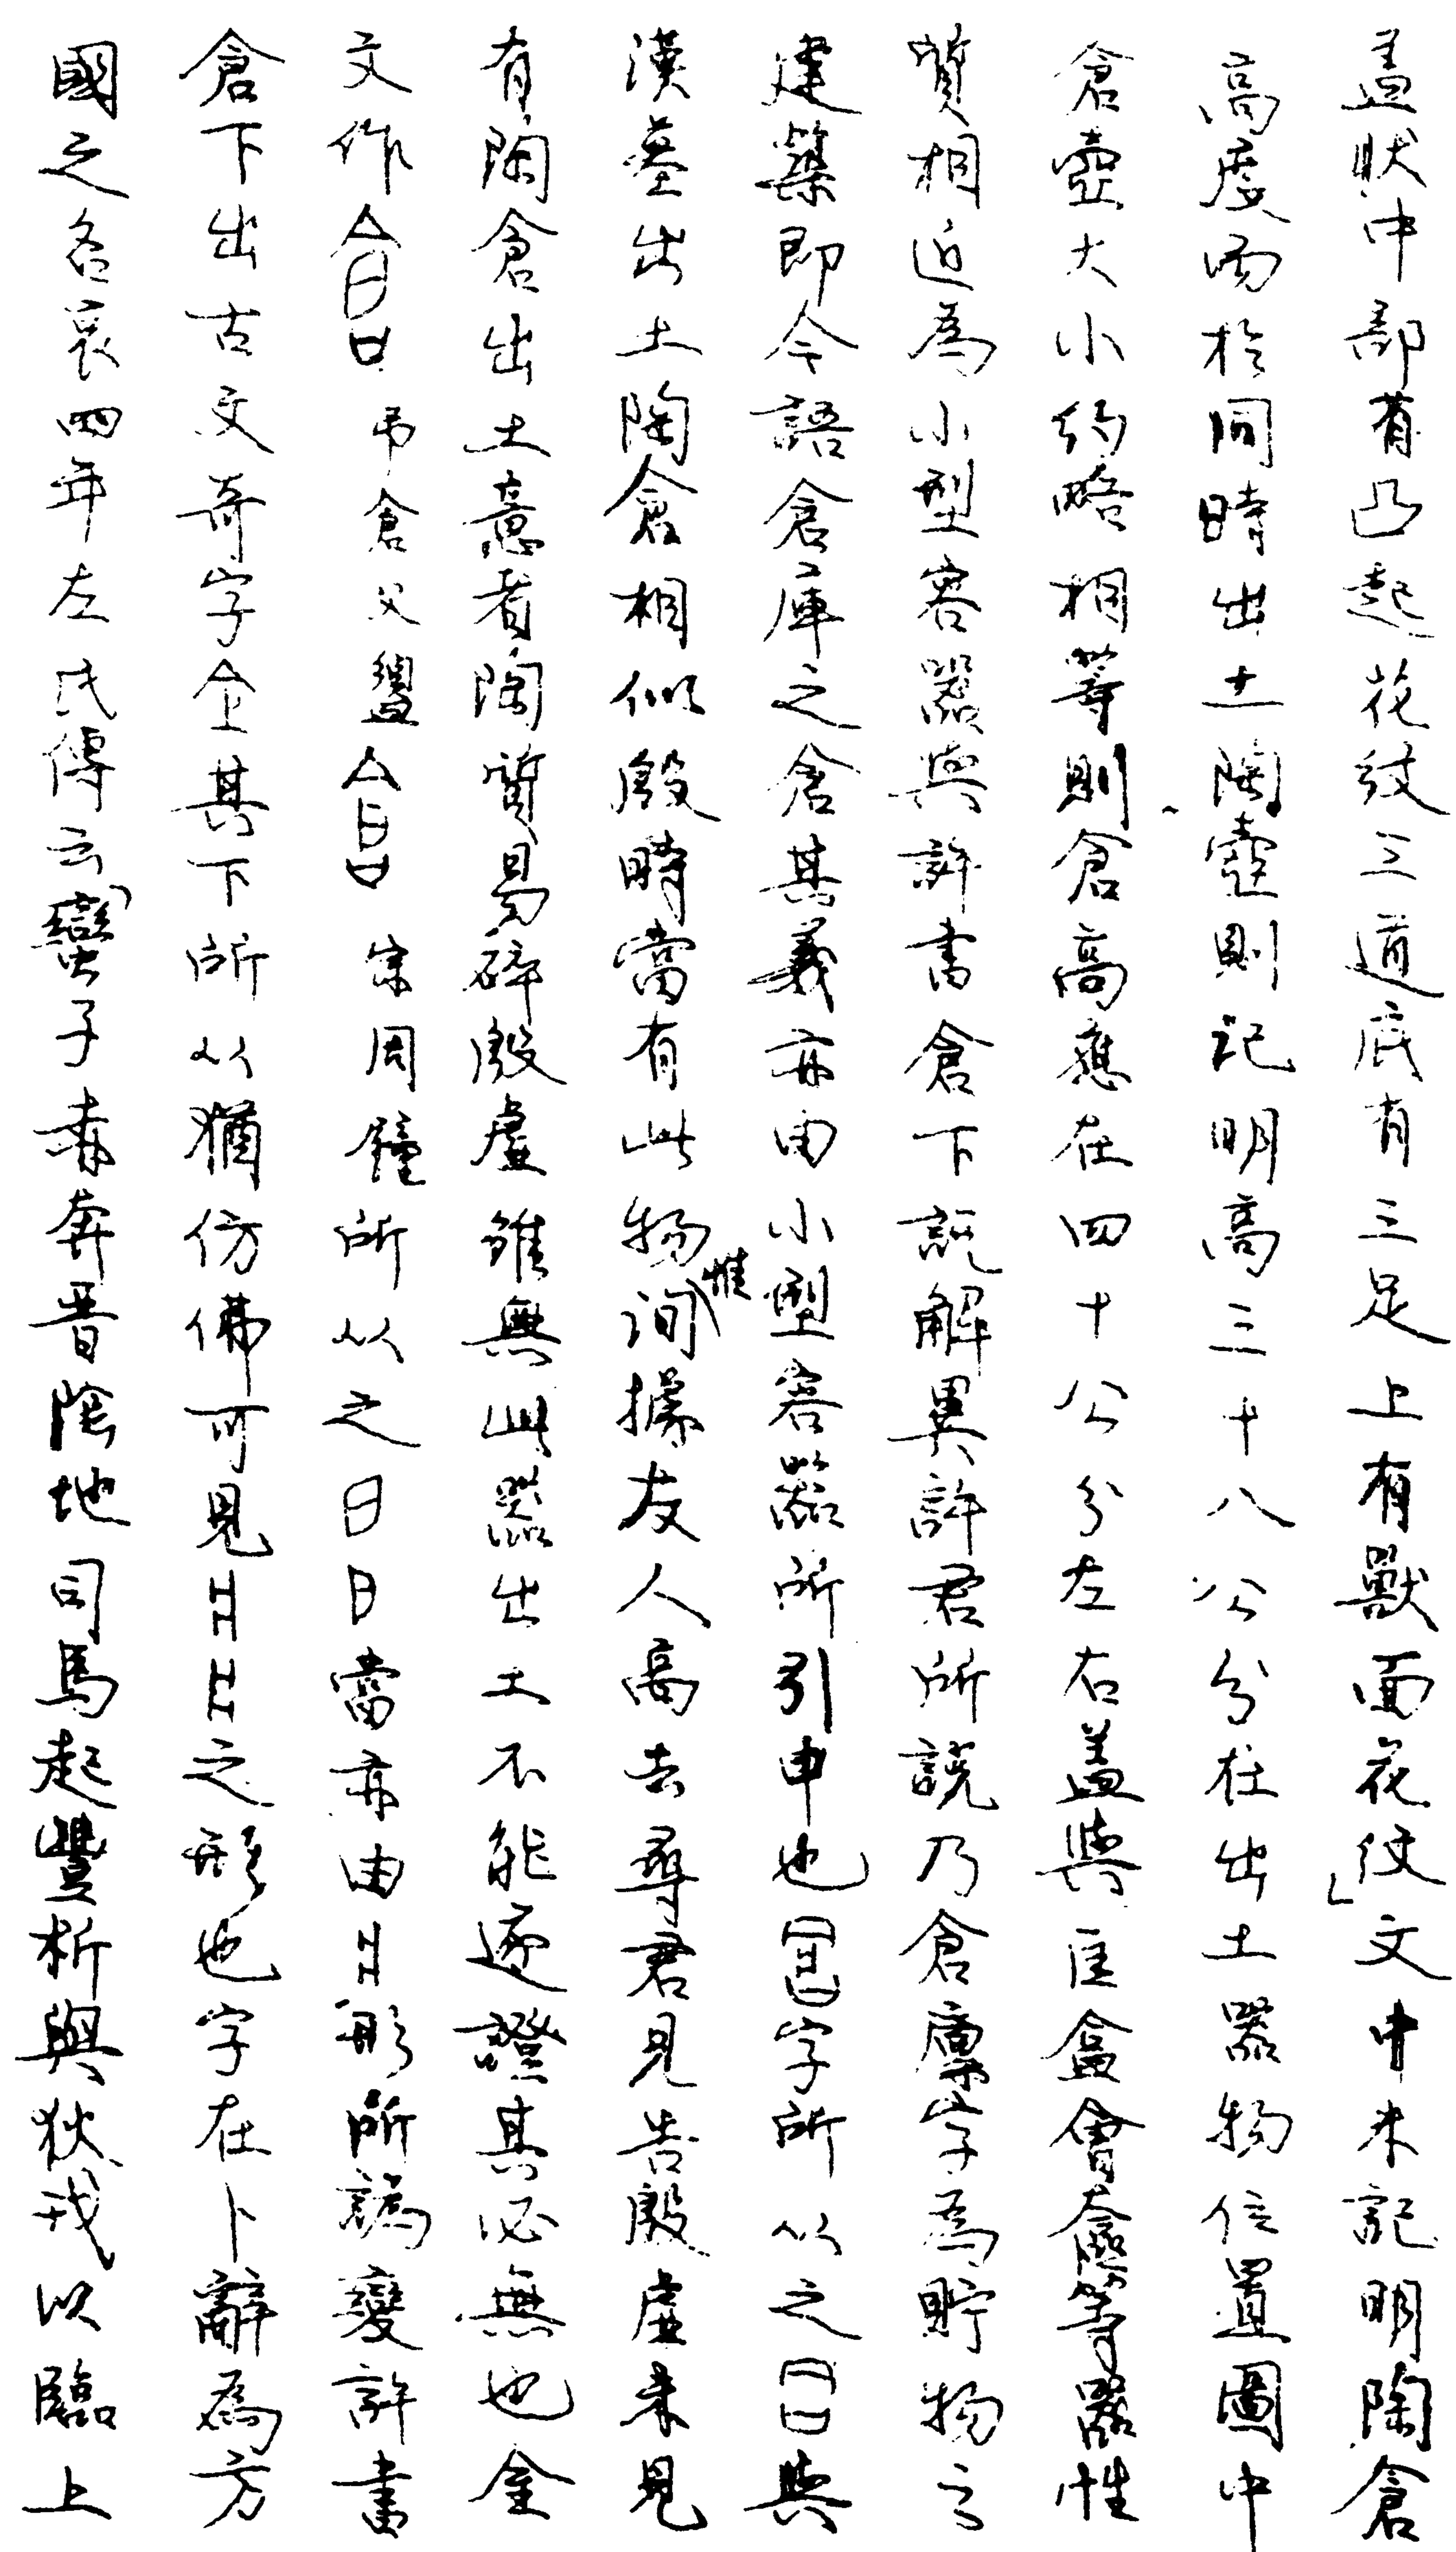 蓋狀中部有凸起花紋三道底有三足上有獸面花紋」文中未記明陶倉
高度而於同時出土陶壺則記明高三十八公分在出土器物位置圖中
倉壺大小約略相等則倉高應在四十公分左右蓋與匡盒會奩等器性
質相近為小型容器與許書倉下說解異許君所說乃倉廩字為貯物之
建築即今語倉庫之倉其義亦由小型容器所引申也字所从之與
漢墓出土陶倉相似殷時當有此物惟詢據友人高去尋君見告殷虛未見
有陶倉出土意者陶質易碎殷虛雖無此器出土不能遽證其必無也金
文作弔倉父盨宗周鐘所从之日日當亦由形所譌變許書
倉下出古文奇字仺其下所从猶仿佛可見之形也字在卜辭為方
國之名哀四年左氏傳云「蠻子赤奔晉陰地司馬起豐析與狄戎以臨上